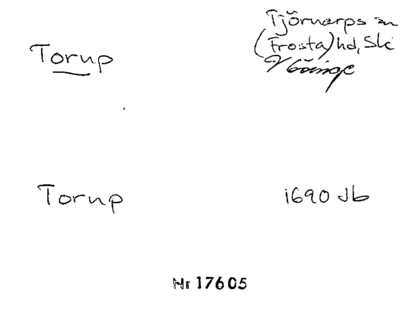 Torup
Tjörnarps sn
(Frosta) hd, Sk
V Göinge
Torup
1690 Jb
Nr 17605